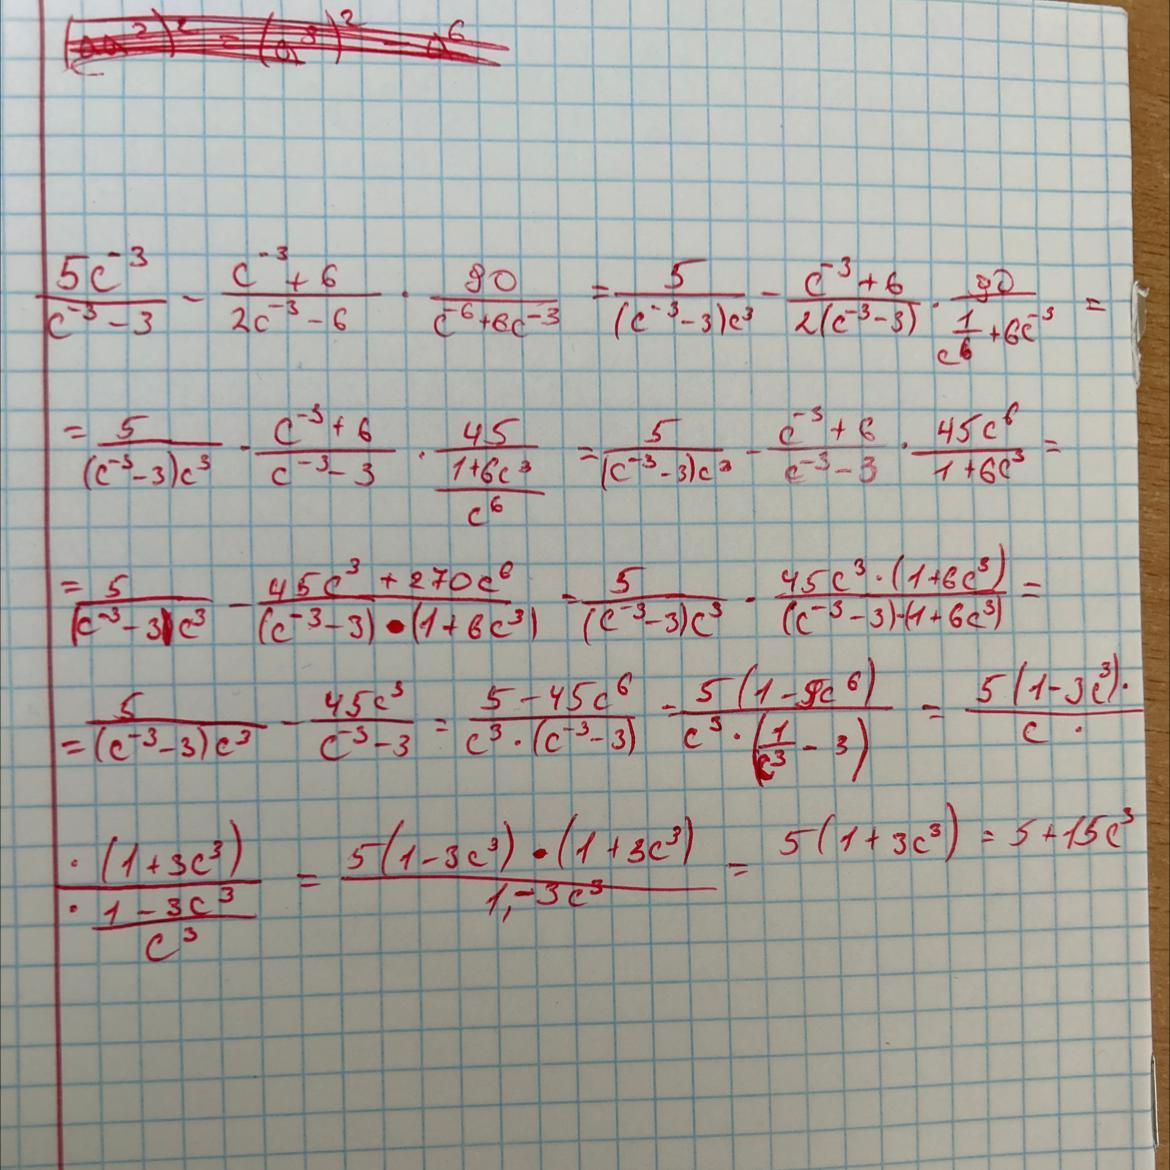 (aa²)² = (a³)² = a⁶
5c⁻³/(c⁻³ - 3) - (c⁻³ + 6)/(2c⁻³ - 6) · 90/(c⁻⁶ + 6c⁻³) = 5/((c⁻³ - 3)c³) - (c⁻³ + 6)/(2(c⁻³ - 3)) · 90/(1/c⁶ + 6c⁻³) =
= 5/((c⁻³ - 3)c³) - (c⁻³ + 6)/(c⁻³ - 3) · 45/((1 + 6c³)/c⁶) = 5/((c⁻³ - 3)c³) - (c⁻³ + 6)/(c⁻³ - 3) · 45c⁶/(1 + 6c³) =
= 5/((c⁻³ - 3)c³) - (45c³ + 270c⁶)/((c⁻³ - 3) · (1 + 6c³)) = 5/((c⁻³ - 3)c³) - (45c³ · (1 + 6c³))/((c⁻³ - 3) · (1 + 6c³)) =
= 5/((c⁻³ - 3)c³) - 45c³/(c⁻³ - 3) = (5 - 45c⁶)/(c³ · (c⁻³ - 3)) = 5(1 - 9c⁶)/(c³ · (1/c³ - 3)) = 5(1 - 3c³) ·/c ·
· (1 + 3c³)/· (1 - 3c³)/c³ = 5(1 - 3c³) · (1 + 3c³)/(1 - 3c³) = 5(1 + 3c³) = 5 + 15c³